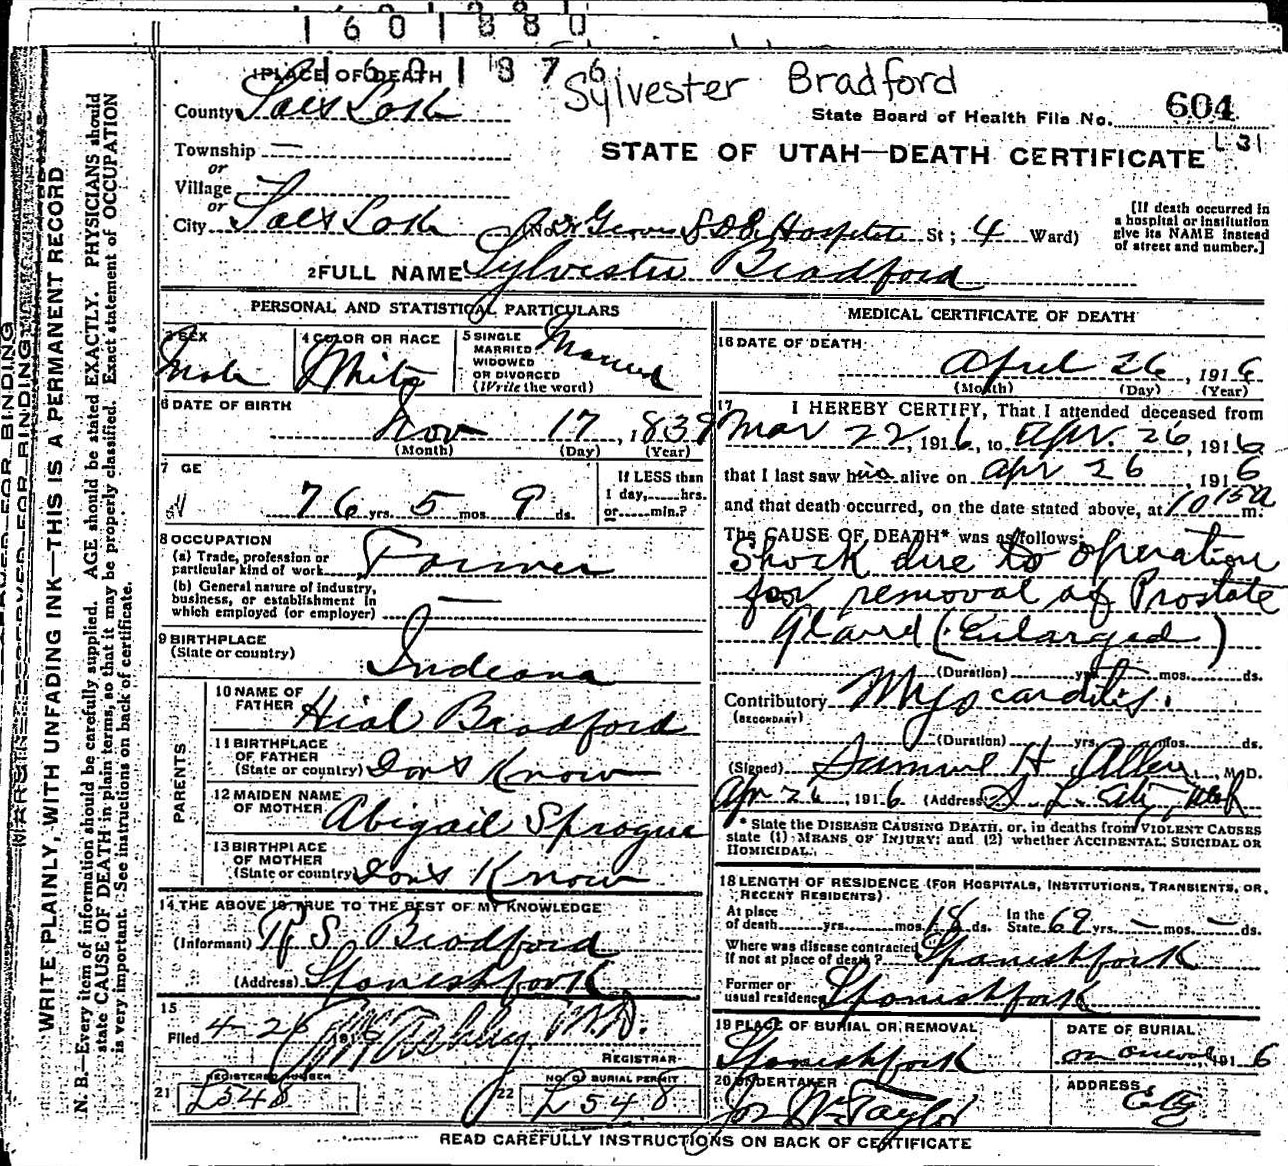 1601880
1601876
Sylvester Bradford
1 PLACE OF DEATH
State Board of Health File No. 604
L 31
County Salt Lake
STATE OF UTAH—DEATH CERTIFICATE
Township —
or
Village
or
City Salt Lake (No. Dr Groves L.D.S. Hospital St; 4 Ward)
[If death occurred in a hospital or institution give its NAME instead of street and number.]
2 FULL NAME Sylvester Bradford
PERSONAL AND STATISTICAL PARTICULARS
3 SEX Male
4 COLOR OR RACE White
5 SINGLE MARRIED WIDOWED OR DIVORCED (Write the word) Married
6 DATE OF BIRTH
Nov 17, 1839
(Month) (Day) (Year)
7 AGE
76 yrs. 5 mos. 9 ds.
If LESS than 1 day, hrs. or min.?
8 OCCUPATION
(a) Trade, profession or particular kind of work Farmer
(b) General nature of industry, business, or establishment in which employed (or employer) —
9 BIRTHPLACE
(State or country) Indiana
PARENTS
10 NAME OF FATHER Hial Bradford
11 BIRTHPLACE OF FATHER (State or country) Dont Know
12 MAIDEN NAME OF MOTHER Abigail Sprague
13 BIRTHPLACE OF MOTHER (State or country) Dont Know
14 THE ABOVE IS TRUE TO THE BEST OF MY KNOWLEDGE
(Informant) R S Bradford
(Address) Spanishfork
15
Filed 4-26 191 6 Ashley M.D.
REGISTRAR
21 REGISTERED NUMBER L548
22 NO. OF BURIAL PERMIT L548
MEDICAL CERTIFICATE OF DEATH
16 DATE OF DEATH
April 26, 1916
(Month) (Day) (Year)
17 I HEREBY CERTIFY, That I attended deceased from
Mar 22, 1916, to Apr. 26, 1916
that I last saw him alive on Apr 26 1916
and that death occurred, on the date stated above, at 10 15a m.
The CAUSE OF DEATH* was as follows:
Shock due to operation
for removal of Prostate
Gland (Enlarged)
(Duration) yrs. mos. ds.
Contributory Myocarditis.
(SECONDARY)
(Duration) yrs. mos. ds.
(Signed) Samuel H Allen, M.D.
Apr 26, 1916 (Address) S. L. City, Utah
* State the DISEASE CAUSING DEATH, or, in deaths from VIOLENT CAUSES state (1) MEANS OF INJURY; and (2) whether ACCIDENTAL, SUICIDAL OR HOMICIDAL.
18 LENGTH OF RESIDENCE (FOR HOSPITALS, INSTITUTIONS, TRANSIENTS, OR RECENT RESIDENTS)
At place of death yrs. mos. 18 ds. In the State 69 yrs. — mos. — ds.
Where was disease contracted if not at place of death? Spanishfork
Former or usual residence Spanishfork
19 PLACE OF BURIAL OR REMOVAL Spanishfork
DATE OF BURIAL 191 6
20 UNDERTAKER Jos Wm Taylor
ADDRESS City
READ CAREFULLY INSTRUCTIONS ON BACK OF CERTIFICATE
MARGIN RESERVED FOR BINDING
WRITE PLAINLY, WITH UNFADING INK—THIS IS A PERMANENT RECORD
N. B.—Every item of information should be carefully supplied. AGE should be stated EXACTLY. PHYSICIANS should
state CAUSE OF DEATH in plain terms, so that it may be properly classified. Exact statement of OCCUPATION
is very important. See instructions on back of certificate.